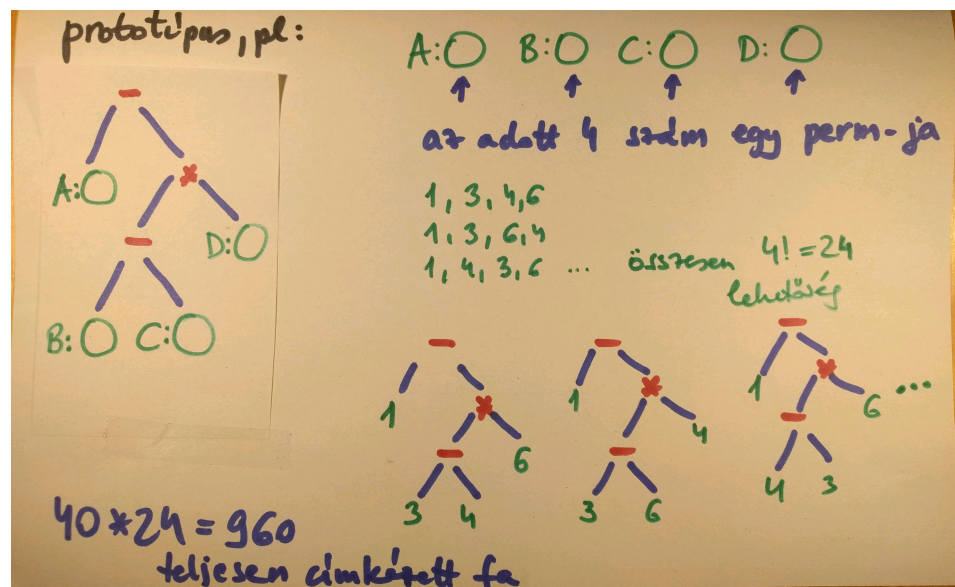 prototípus, pl:
A: B: C: D:
az adott 4 szám egy perm-ja
-
A:
*
-
D:
B: C:
1, 3, 4, 6
1, 3, 6, 4
1, 4, 3, 6 ... összesen 4! = 24
lehetőség
- - -
1 * 1 * 1 * ...
- 6 - 4 - 6
3 4 3 6 4 3
40 * 24 = 960
teljesen címkézett fa